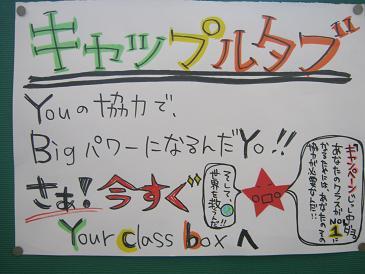 キャップルタブ
Youの協力で、
BigパワーになるんだYo!!
さぁ!今すぐ
Your class box へ
そして、
世界を救うんだ
キャンペーン
あなたのクラスがNo.1に
なるためには、あなたの
協力が必要なんだ!!